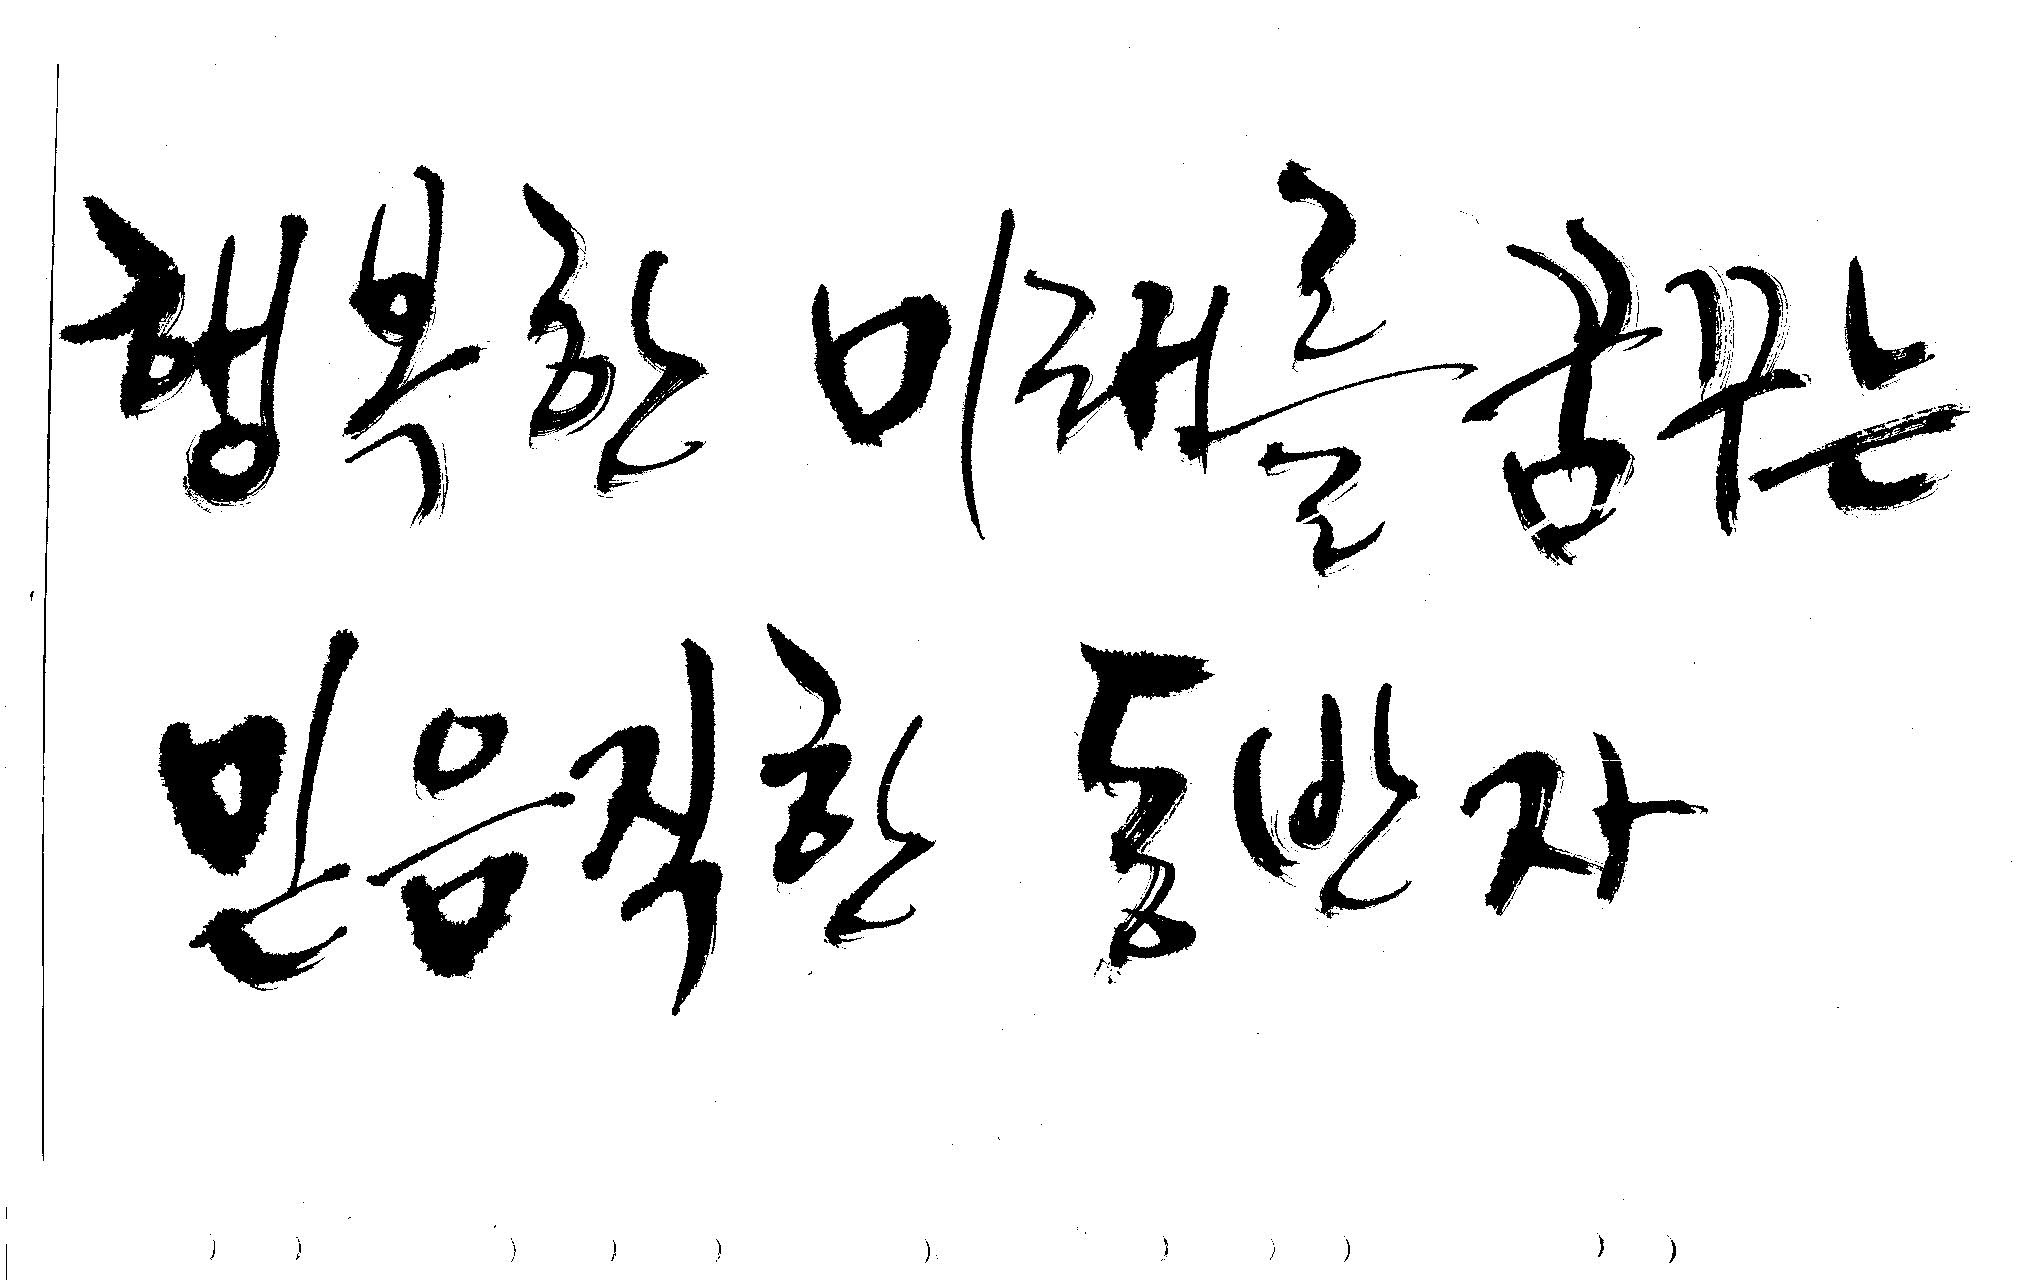 행복한 미래를 꿈꾸는
믿음직한 동반자